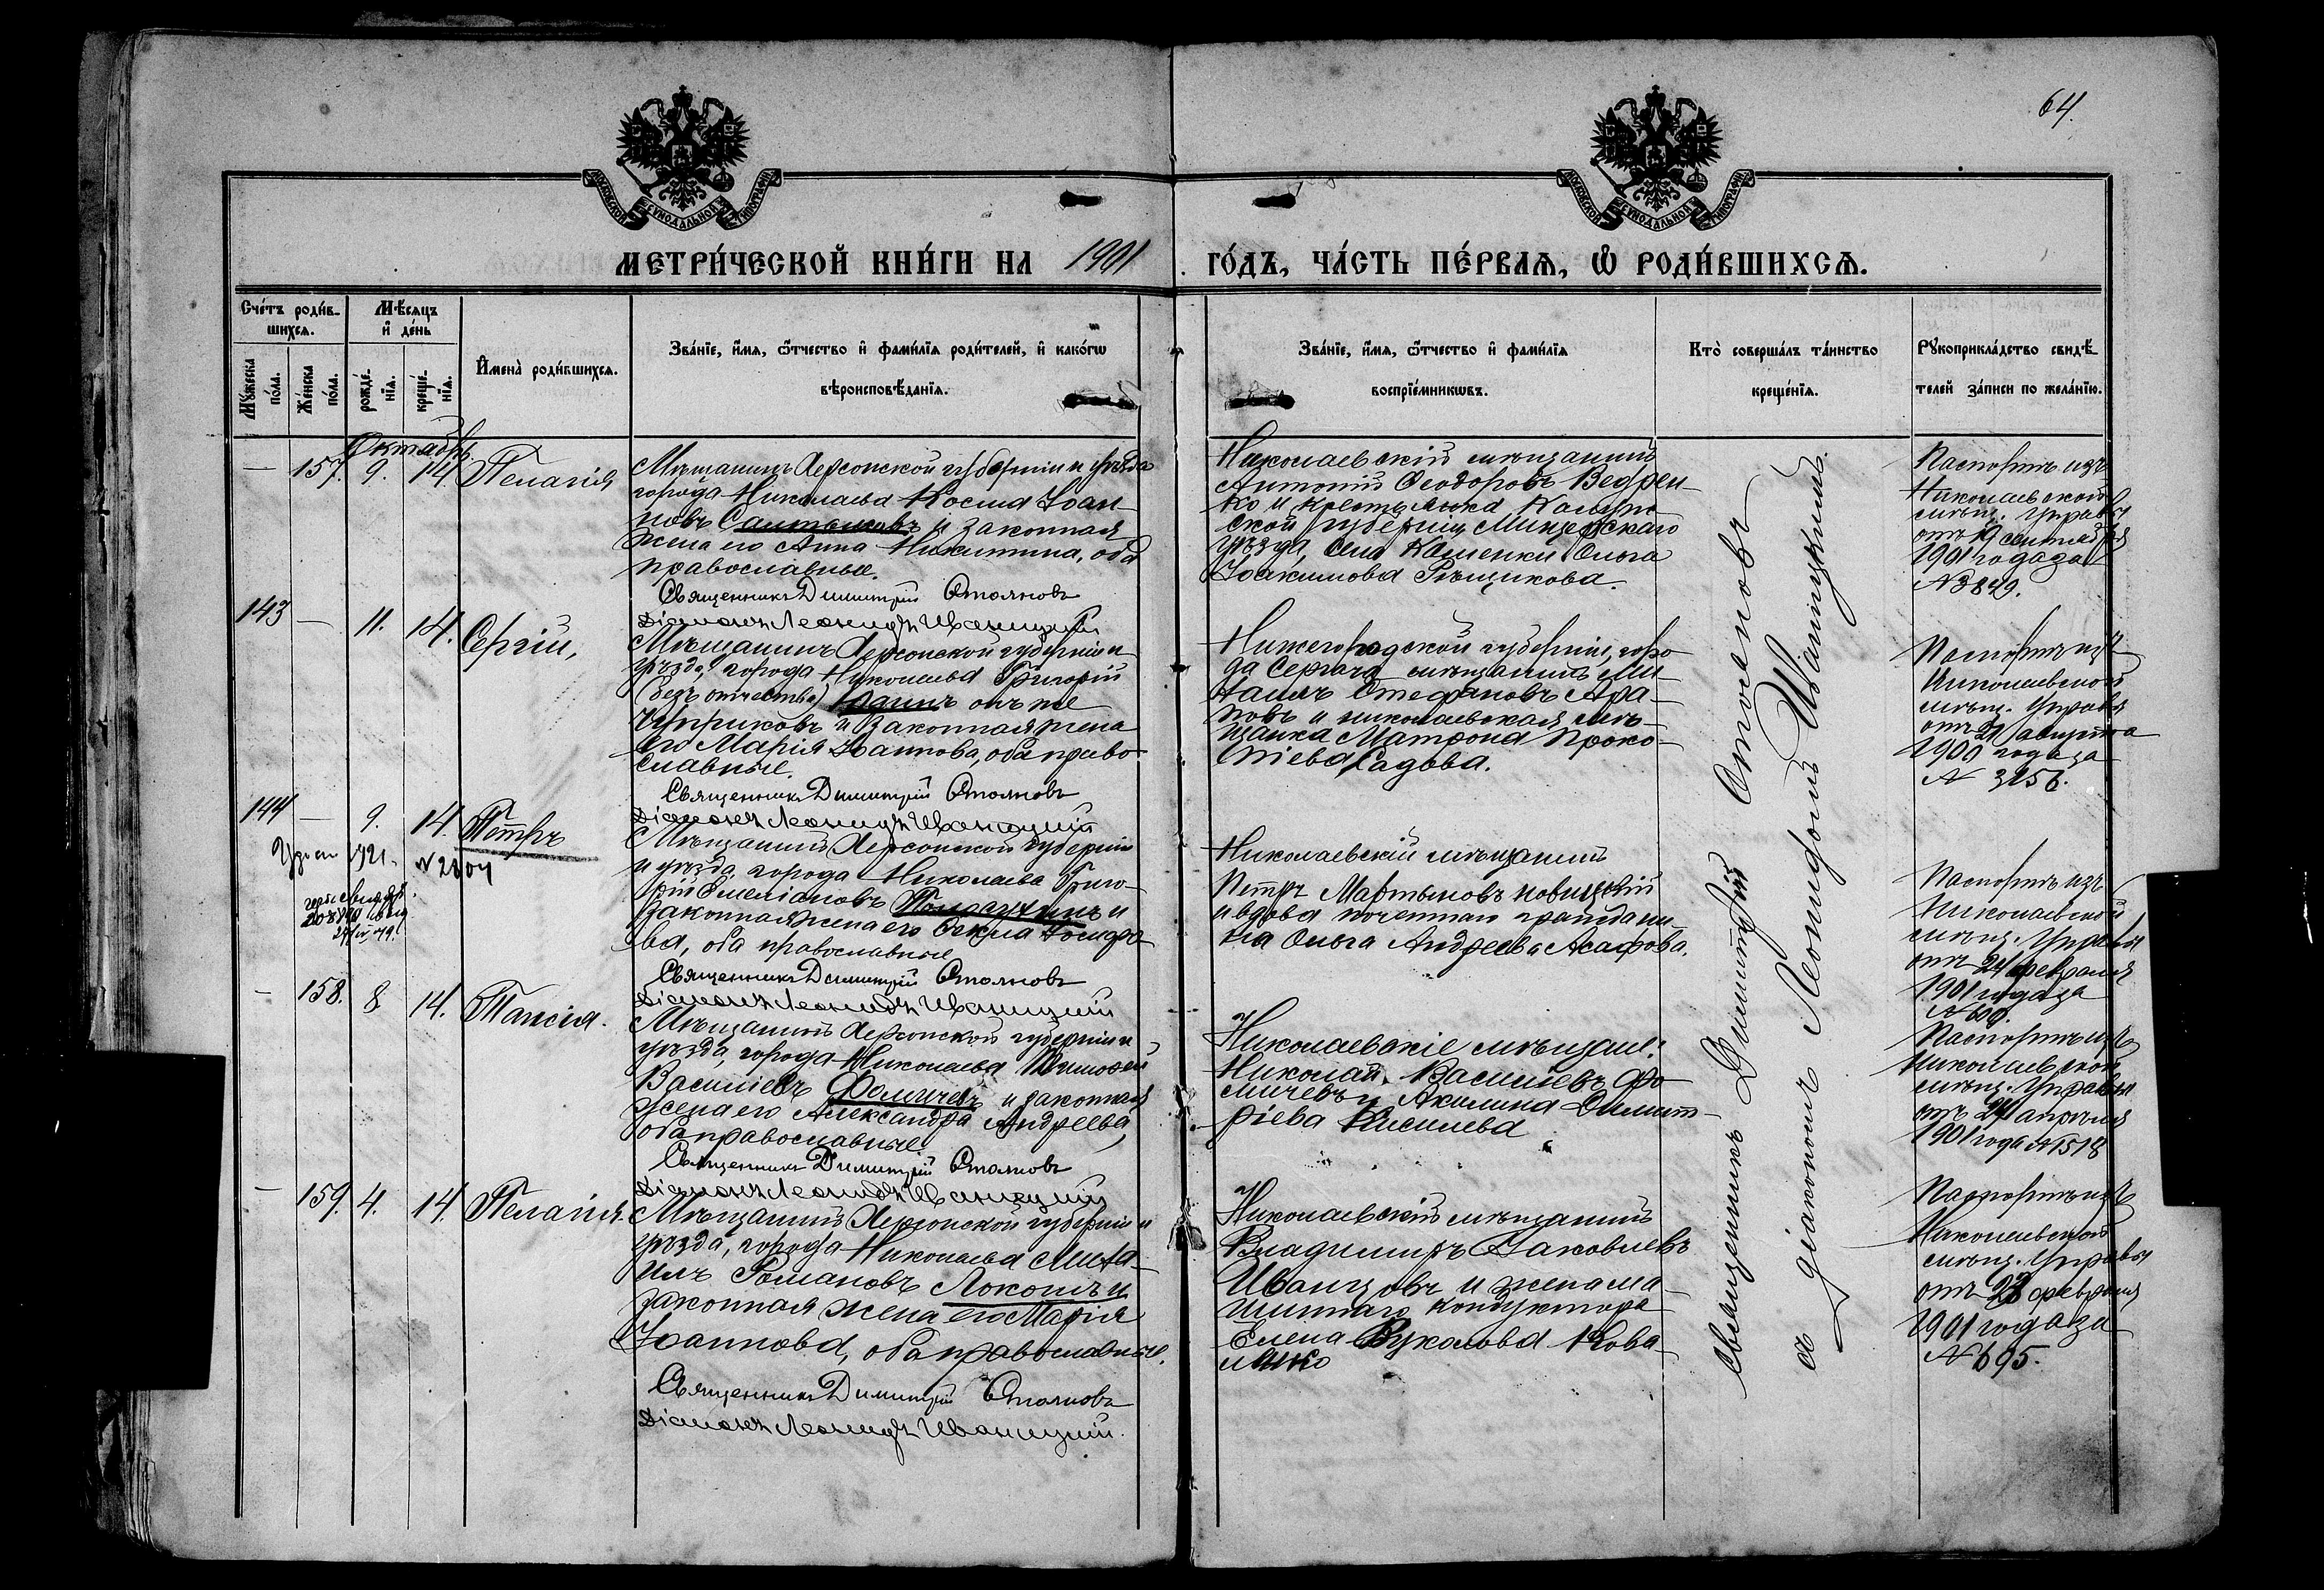 64.
МОСКОВСКОЙ СѴНОДАЛЬНОЙ ТИПОГРАФІИ
МОСКОВСКОЙ СѴНОДАЛЬНОЙ ТИПОГРАФІИ
МЕТРИ́ЧЕСКОЙ КНИ́ГИ НА 1901 ГО́ДЪ, ЧА́СТЬ ПЕ́РВАѦ, Ѡ҆ РОДИ́ВШИХСѦ.
Сче́тъ роди́в-
шихсѧ.
Мꙋ́жеска
по́ла.
Же́нска
по́ла.
Мѣ́сѧцъ
и҆ де́нь
рожде́-
нїѧ.
креще́-
нїѧ.
И҆мена̀ роди́вшихсѧ.
Зва́нїе, и҆́мѧ, ѻ҆́тчество и҆ фами́лїѧ роди́телей, и҆ како́гѡ
вѣроисповѣ́данїѧ.
Зва́нїе, и҆́мѧ, ѻ҆́тчество и҆ фами́лїѧ
воспрїе́мникѡвъ.
Кто̀ соверша́лъ та́инство
креще́нїѧ.
Рꙋкоприкла́дство свидѣ́-
телей за́писи по жела́нїю.
Октябрь.
— 157. 9. 14. Пелагія
Мѣщанинъ Херсонской губерніи и уѣзда
города Николаева Косма Іоан-
новъ и законная
жена его Анна Никитина, оба
православные.
Священникъ Димитрій Стояновъ
Діаконъ Леонидъ Иваницкій
Николаевскій мѣщанинъ
Антоній Ѳеодоровъ Ведрен-
ко и крестьянка Калуж-
ской губерніи,
уѣзда, села Каменки Ольга
Іоакимова
Паспортъ изъ
Николаевской
мѣщ. Управы
отъ 19 сентября
1901 года за
№ 3849.
143 — 11. 14. Сергій,
Мѣщанинъ Херсонской губерніи и
уѣзда, города Николаева Григорій
(безъ отчества) онъ же
Чуприковъ и законная жена
его Марія Іоаннова, оба право-
славные.
Священникъ Димитрій Стояновъ
Діаконъ Леонидъ Иваницкій
Нижегородской губерніи, горо-
да Сергача мѣщанинъ Ми-
хаилъ Стефановъ Ага-
повъ и николаевская мѣ-
щанка Матрона Проко-
піева Садова.
Паспортъ изъ
Николаевской
мѣщ. Управы
отъ 21 августа
1900 года за
№ 3156.
144 — 9. 14. Петръ
1921. № 2804
Мѣщанинъ Херсонской губерніи
и уѣзда, города Николаева Григо-
рій Емеліановъ и
законная жена его Ѳекла Іосифо-
ва, оба православные
Священникъ Димитрій Стояновъ
Діаконъ Леонидъ Иваницкій
Николаевскій мѣщанинъ
Петръ Мартыновъ Новицкій
и вдова почетнаго граждани-
на Ольга Андреева Асафова.
Паспортъ изъ
Николаевской
мѣщ. Управы
отъ 24 февраля
1901 года за
№ 619.
— 158. 8 14. Таисія.
Мѣщанинъ Херсонской губерніи и
уѣзда, города Николаева Тимоѳей
Василіевъ Фомичевъ и законная
жена его Александра Андреева,
оба православные.
Священникъ Димитрій Стояновъ
Діаконъ Леонидъ Иваницкій
Николаевскіе мѣщане:
Николай Василіевъ Фо-
мичевъ и Акилина Димит-
ріева Василіева
Паспортъ изъ
Николаевской
мѣщ. Управы
отъ 24 апрѣля
1901 года № 1518
— 159. 4. 14. Пелагія.
Мѣщанинъ Херсонской губерніи и
уѣзда, города Николаева Миха-
илъ Романовъ Локоть и
законная жена его Марія
Іоаннова, оба православные.
Священникъ Димитрій Стояновъ
Діаконъ Леонидъ Иваницкій.
Николаевскій мѣщанинъ
Владимиръ Іаковлевъ
Иванцовъ и жена ма-
шиннаго кондуктора
Елена Вуколова Кова-
ленко
Паспортъ изъ
Николаевской
мѣщ. Управы
отъ 28 февраля
1901 года за
№ 695.
Священникъ Димитрій Стояновъ
съ діакономъ Леонидомъ Иваницкимъ.